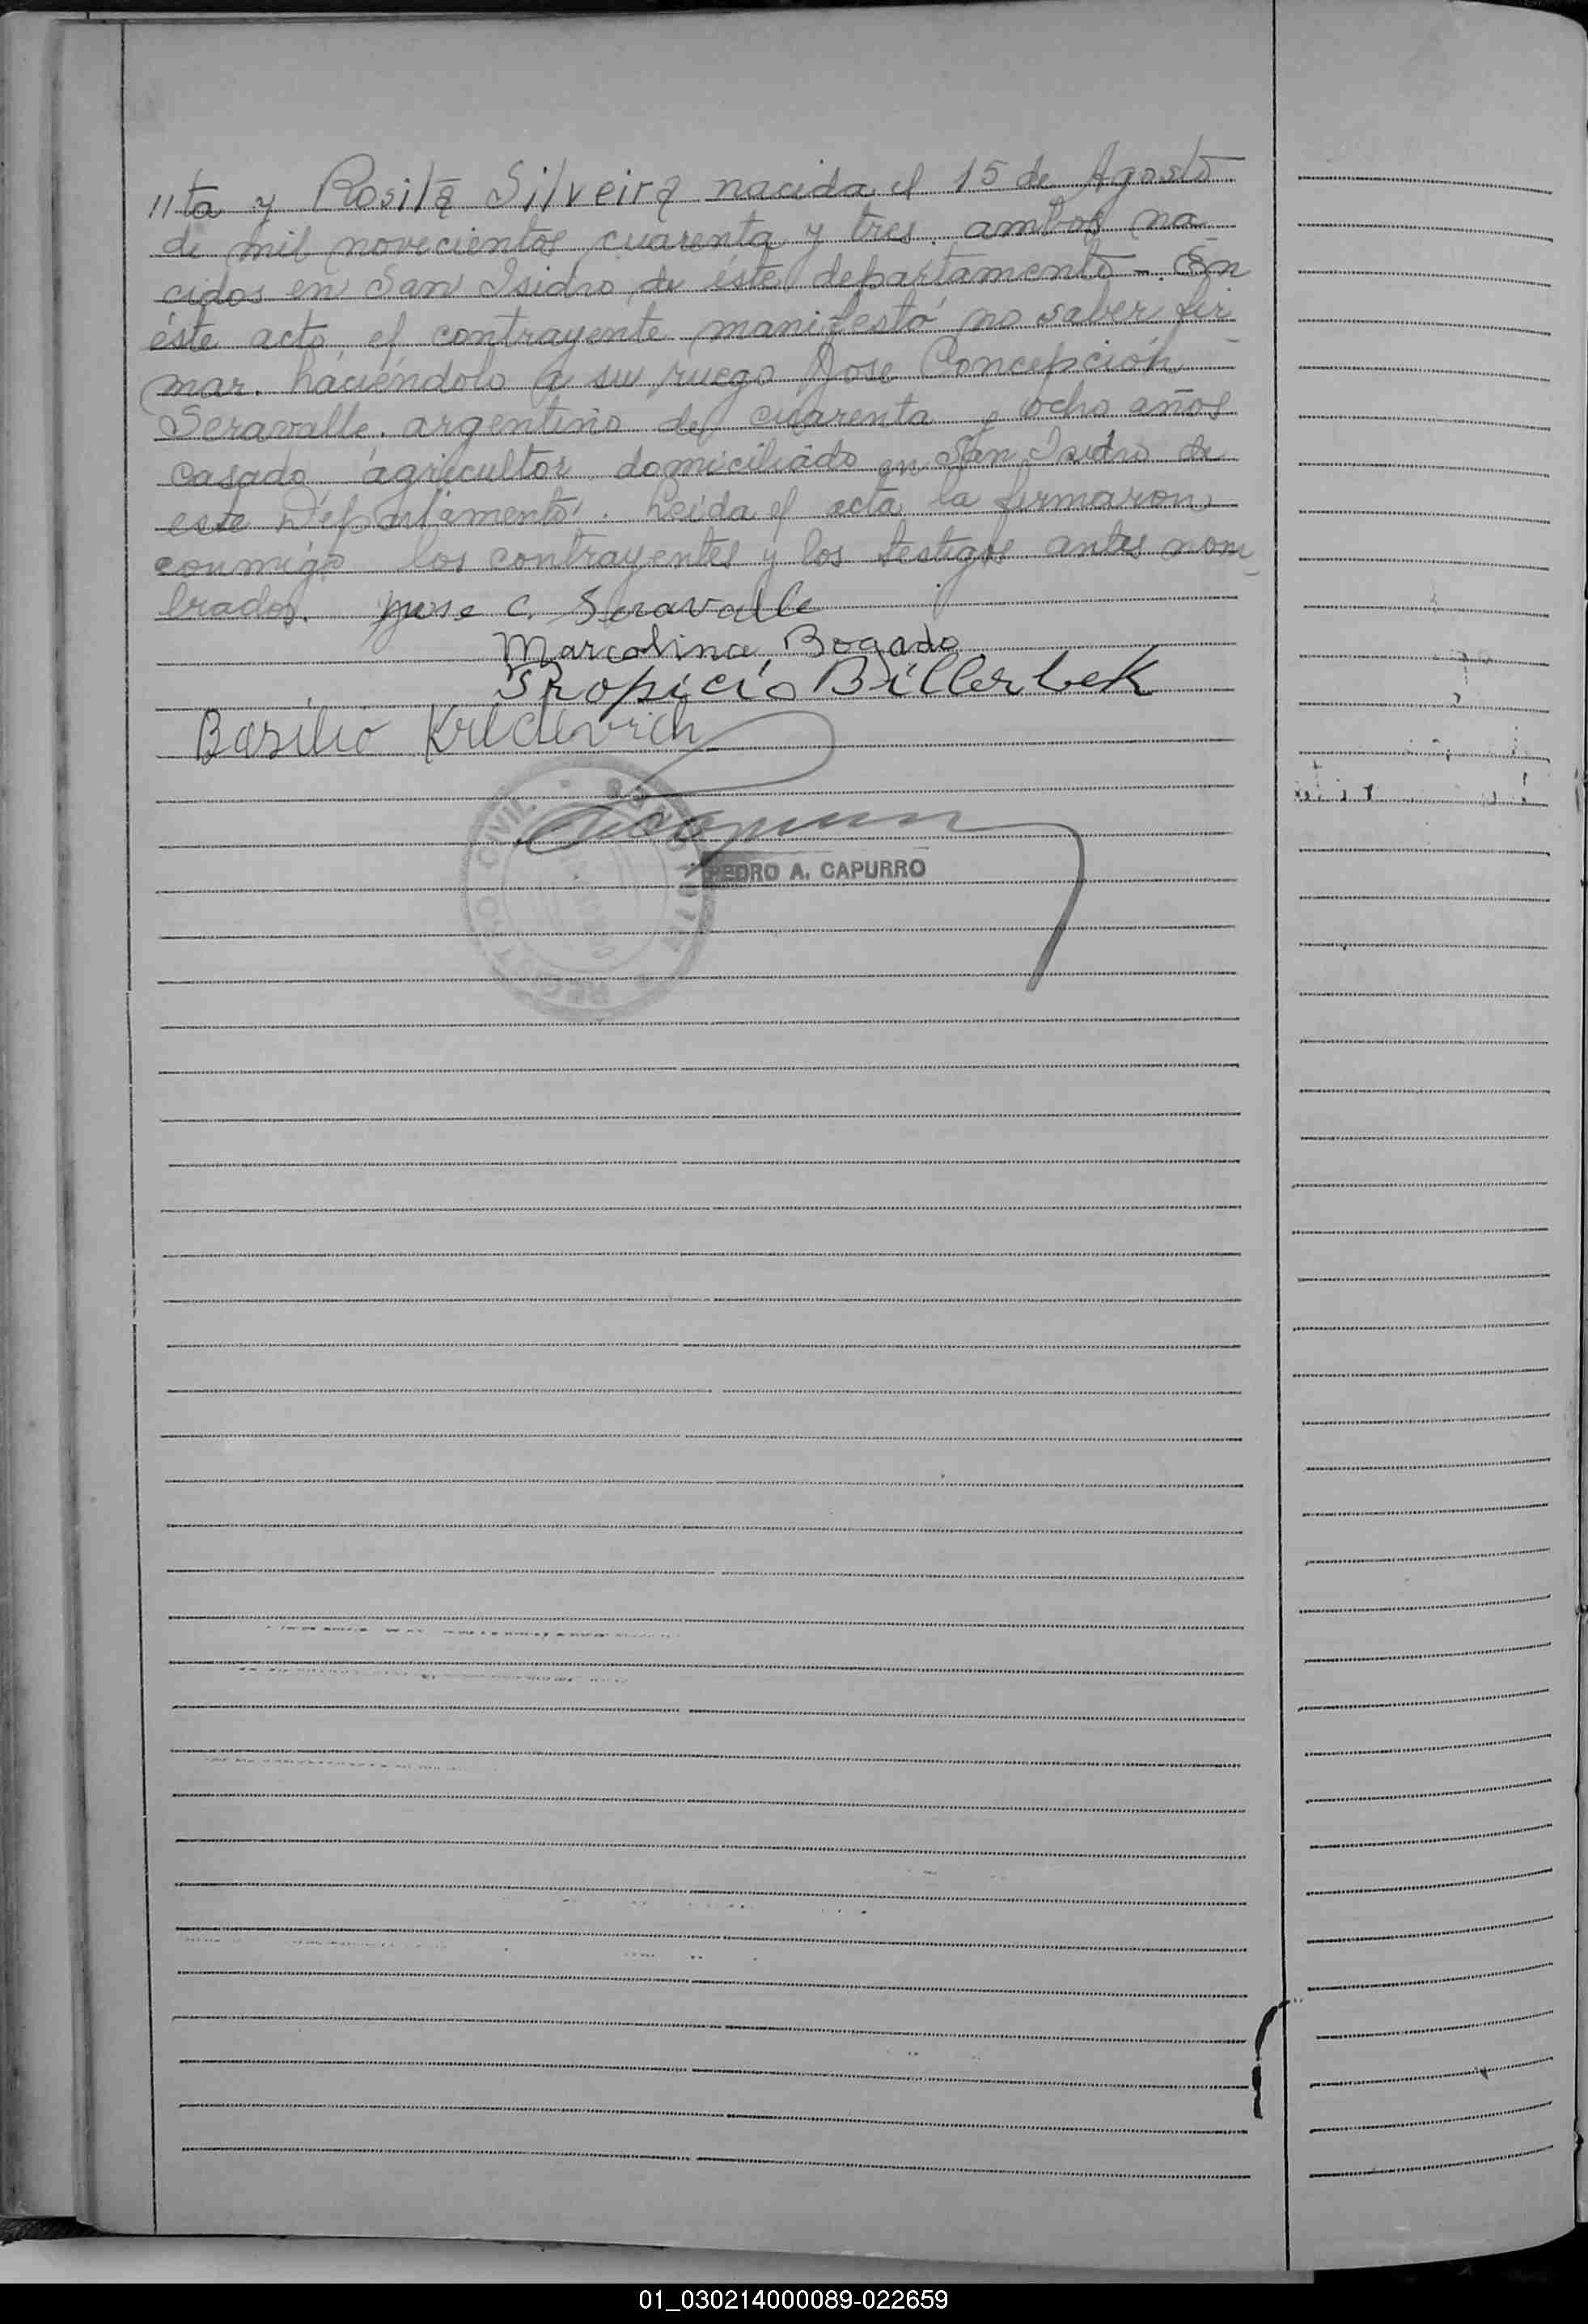 "ta y Rosita Silveira nacida el 15 de Agosto
de mil novecientos cuarenta y tres. ambos na-
cidos en San Isidro de éste departamento - En
éste acto, el contrayente manifestó no saber fir-
mar. haciéndolo a su ruego Jose Concepción
Seravalle. argentino de cuarenta y ocho años
casado agricultor domiciliado en San Isidro de
este Departamento. Leida el acta la firmaron
conmigo los contrayentes y los testigos antes nom-
brados. Jose C. Seravalle
Marcolina Bogado
Propicio Billerbek
Basilio
REGISTRO CIVIL
PEDRO A. CAPURRO
01_030214000089-022659